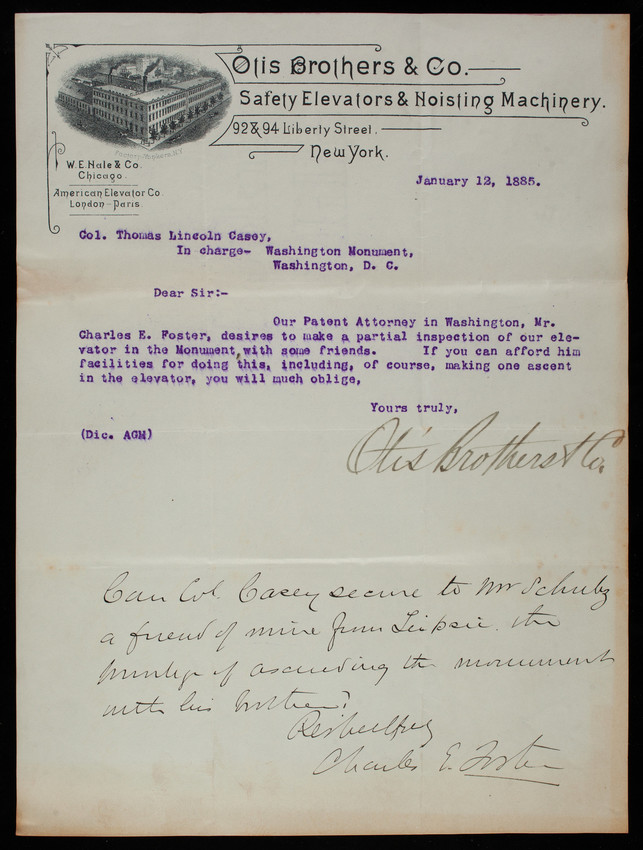 Otis Brothers & Co.
Safety Elevators & Hoisting Machinery.
92 & 94 Liberty Street.
New York.
W. E. Hale & Co.
Chicago.
American Elevator Co.
London - Paris.
January 12, 1885.
Col. Thomas Lincoln Casey,
In charge- Washington Monument,
Washington, D. C.
Dear Sir:-
Our Patent Attorney in Washington, Mr.
Charles E. Foster, desires to make a partial inspection of our ele-
vator in the Monument, with some friends. If you can afford him
facilities for doing this, including, of course, making one ascent
in the elevator, you will much oblige,
Yours truly,
(Dic. AGM)
Otis Brothers & Co.
Can Col. Casey secure to Mr Schulz
a friend of mine from Leipsic the
privilege of ascending the monument
with his brother?
Respectfully
Charles E. Foster